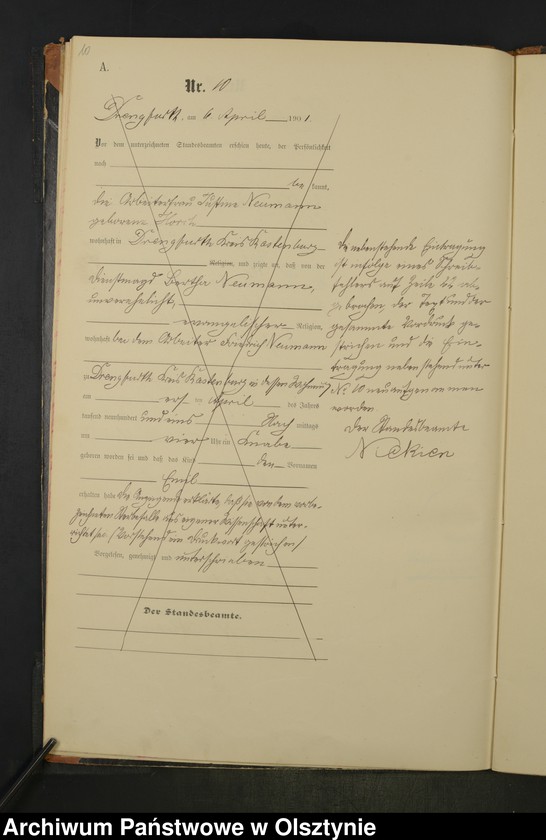 10
A.
Nr. 10
Drengfurth, am 6 April 1901.
Vor dem unterzeichneten Standesbeamten erschien heute, der Persönlichkeit
nach
be kannt,
die Arbeiterfrau Justine Neumann
geborene
wohnhaft in Drengfurth Kreis Rastenburg
Religion, und zeigte an, daß von der
Dienstmagd Bertha Neumann,
unverehelicht,
evangelischer Religion,
wohnhaft bei dem Arbeiter Friedrich Neumann
zu Drengfurth Kreis Rastenburg in dessen Wohnung
am ersten April des Jahres
tausend neunhundert und eins Nach mittags
um vier Uhr ein Knabe
geboren worden sei und daß das Kind den Vornamen
Emil
erhalten habe. Die Anzeigende erklärte, daß sie von dem vorbe-
zeichneten Sterbefalle aus eigener Wissenschaft unter-
richtet sei. (Vorstehend ein Druckwort gestrichen)
Vorgelesen, genehmigt und unterschrieben
Der Standesbeamte.
Die nebenstehende Eintragung
ist infolge eines Schreib-
fehlers auf Zeile 24 ab-
gebrochen, der Text und der
gesammte Vordruck ge-
strichen und die Ein-
tragung nebenstehend unter
No 10 neu aufgenommen
worden
Der Standesbeamte
Archiwum Państwowe w Olsztynie